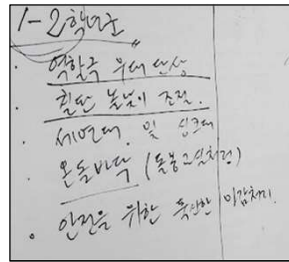 1-2학년군
· 역할극 무대 단상
· 칠판 높낮이 조절.
· 세면대. 및 싱크대
· 온돌바닥 (돌봄교실처럼)
· 안전을 위한 푹신한 마감처리.